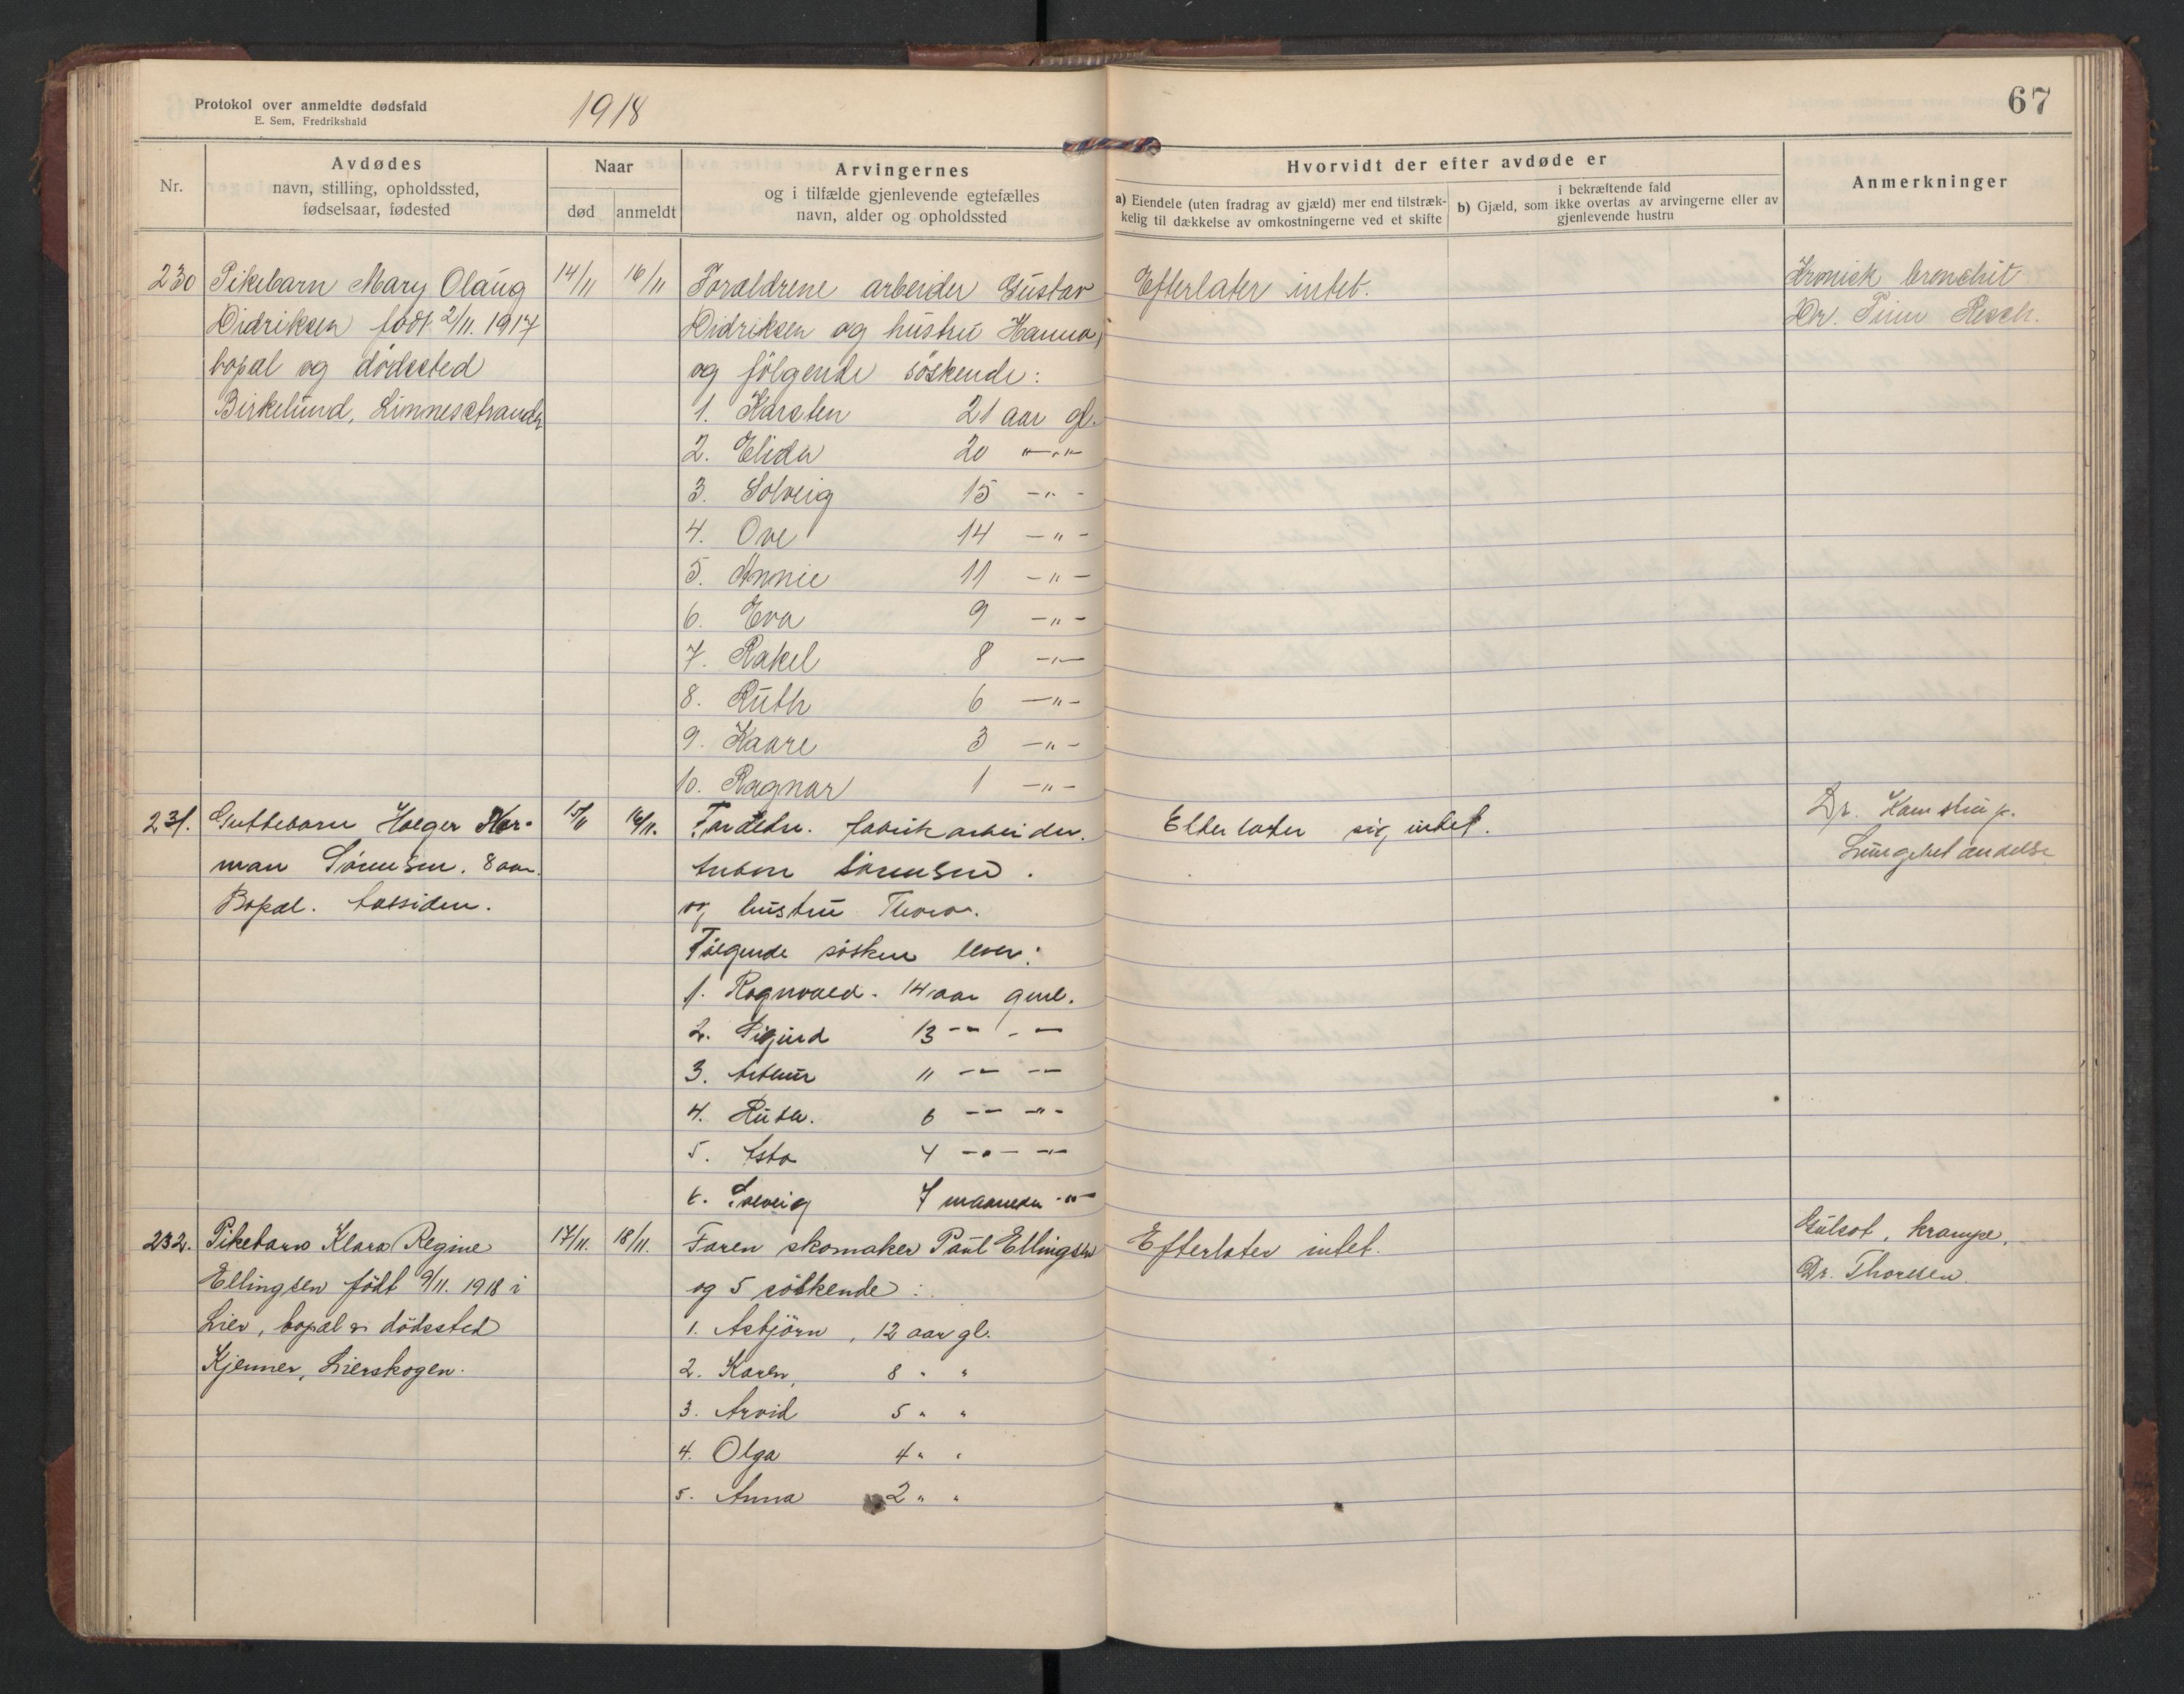 Protokol over anmeldte dødsfald
E. Sem, Fredrikshald
1918
67
Nr.
Avdødes
navn, stilling, opholdssted,
fødselsaar, fødested
Naar
død anmeldt
Arvingernes
og i tilfælde gjenlevende egtefælles
navn, alder og opholdssted
Hvorvidt der efter avdøde er
a) Eiendele (uten fradrag av gjæld) mer end tilstræk-
kelig til dækkelse av omkostningerne ved et skifte
i bekræftende fald
b) Gjæld, som ikke overtas av arvingerne eller av
gjenlevende hustru
Anmerkninger
230 Pikebarn Mary Olaug 14/11 16/11 Forældrene arbeider Gustav Efterlater intet. Kronisk bronchit
Didriksen født 2/11. 1917 Didriksen og hustru Hanna, Dr.
bopæl og dødssted og følgende søskende:
Birkelund, Linnesstranda 1. Karsten 21 aar gl.
2. Elida 20 —"—
3. Solveig 15 —"—
4. Ove 14 —"—
5. Annie 11 —"—
6. Eva 9 —"—
7. Rakel 8 —"—
8. Ruth 6 —"—
9. Kaare 3 —"—
10. Ragnar 1 —"—
231. Guttebarn Holger Nor- 15/11 16/11. Forældre. fabrikarbeider. Efterlater sig intet. Dr. Kamstrup.
man Sørensen. 8 aar. Anton Sørensen. Lungebetændelse
Bopæl. Aassiden. og hustru Thora.
Følgende søsken lever:
1. Ragnvald. 14 aar gml.
2. Sigurd 13 —"—
3. Arthur 11 —"—
4. Ruth. 6 —"—
5. Asta 4 —"—
6. Solveig 7 maaneder —"—
232. Pikebarn Klara Regine 17/11. 18/11. Faren skomaker Paul Ellingsen Efterlater intet. Gulsot, krampe.
Ellingsen født 9/11. 1918 i og 5 søskende: Dr. Thoresen.
Lier, bopæl og dødssted 1. Asbjørn, 12 aar gl.
Kjenner, Lierskogen. 2. Karen, 8 " "
3. Arvid 5 " "
4. Olga 4 " "
5. Anna 2 " "